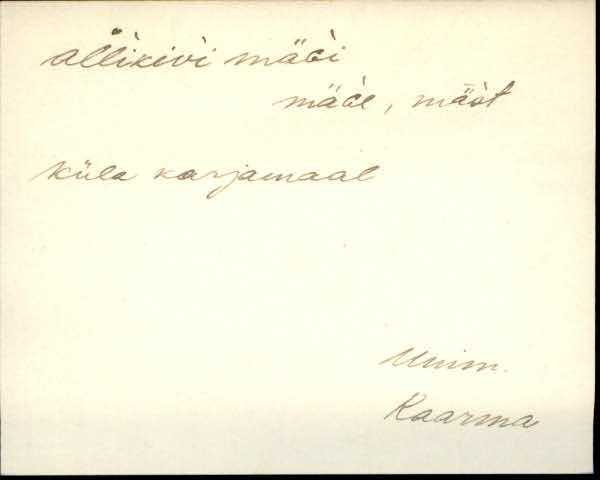 allikivi mäɢi
mäɢe, määt
küla karjamaal
Unim.
Kaarma